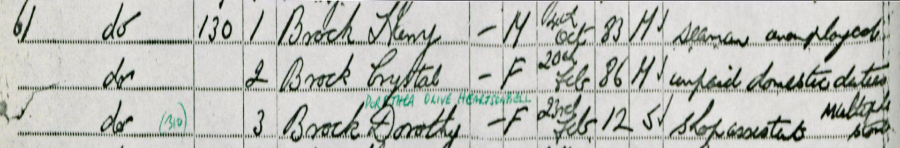 61 do 130 1 Brock Henry - M 2nd Oct 83 M seaman unemployed
do 2 Brock Crystal - F 20th Feb 86 M unpaid domestic duties
DOROTHEA OLIVE
do (130) 3 Brock Dorothy - F 23rd Feb 12 S shop assistant Multiple store